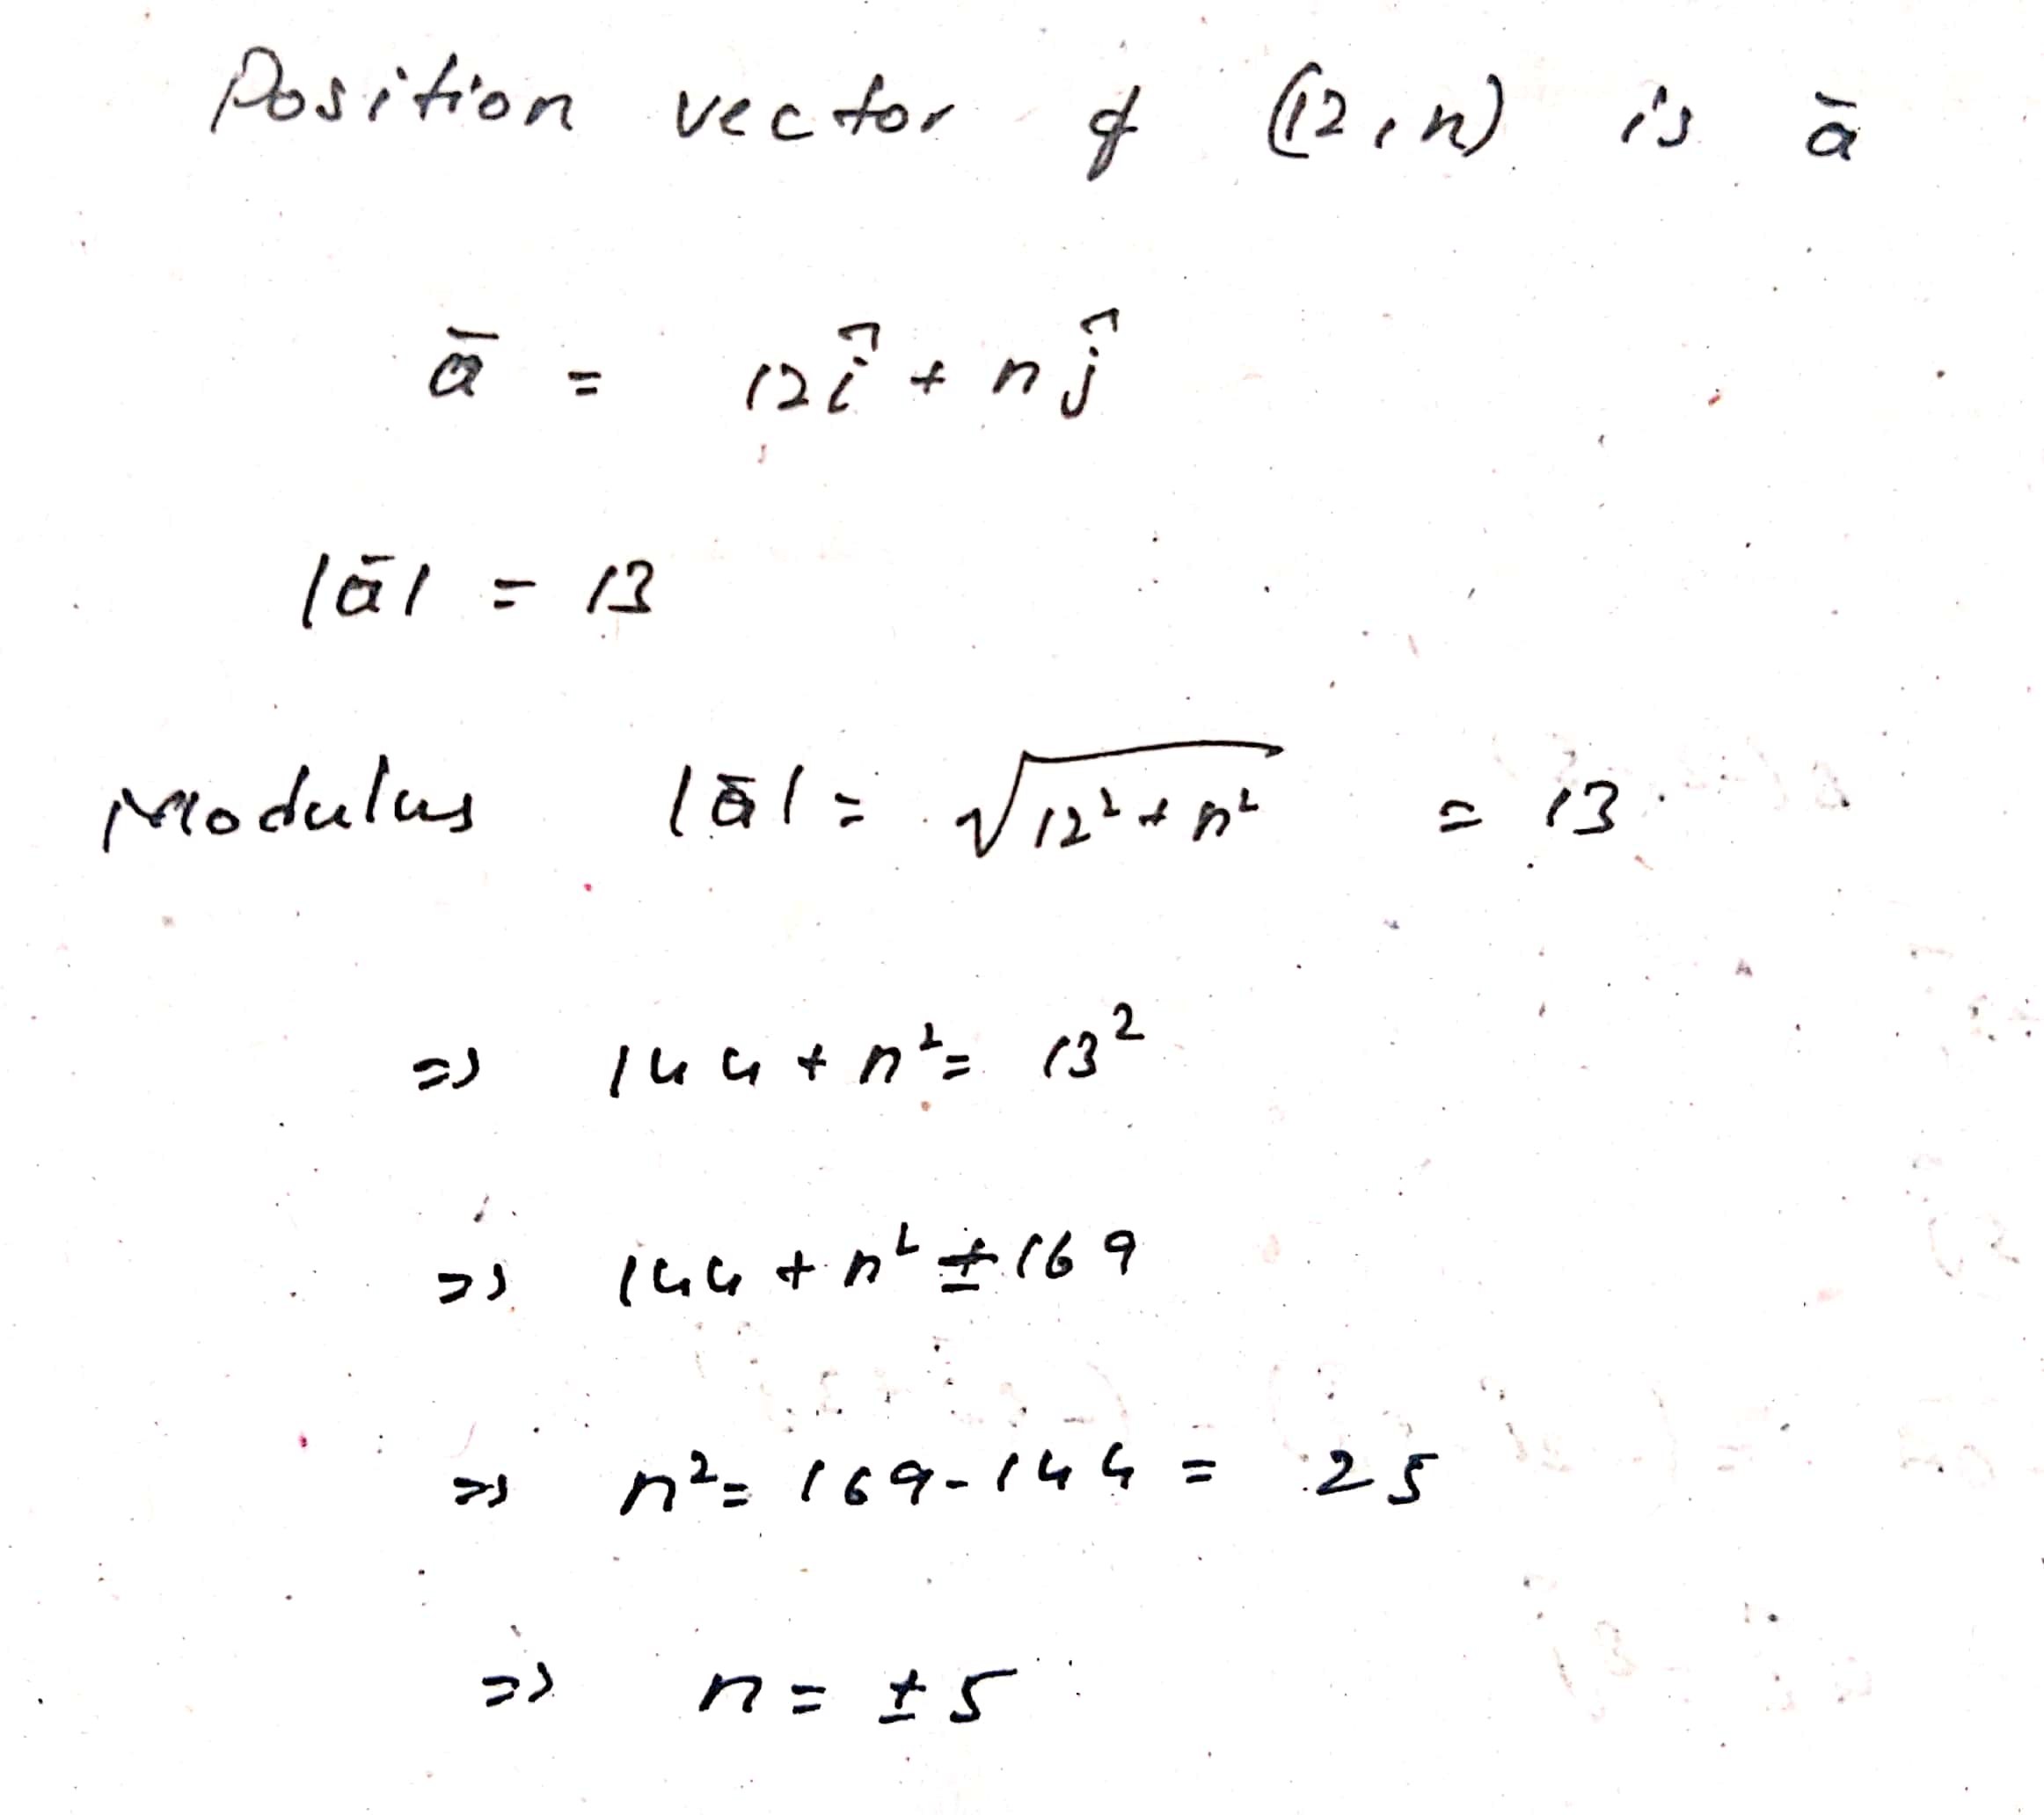 Position vector of (12,n) is ā
ā = 12î + nĵ
|ā| = 13
Modulus |ā| = √(12² + n²) = 13
⇒ 144 + n² = 13²
⇒ 144 + n² ± 169
⇒ n² = 169 - 144 = 25
⇒ n = ± 5